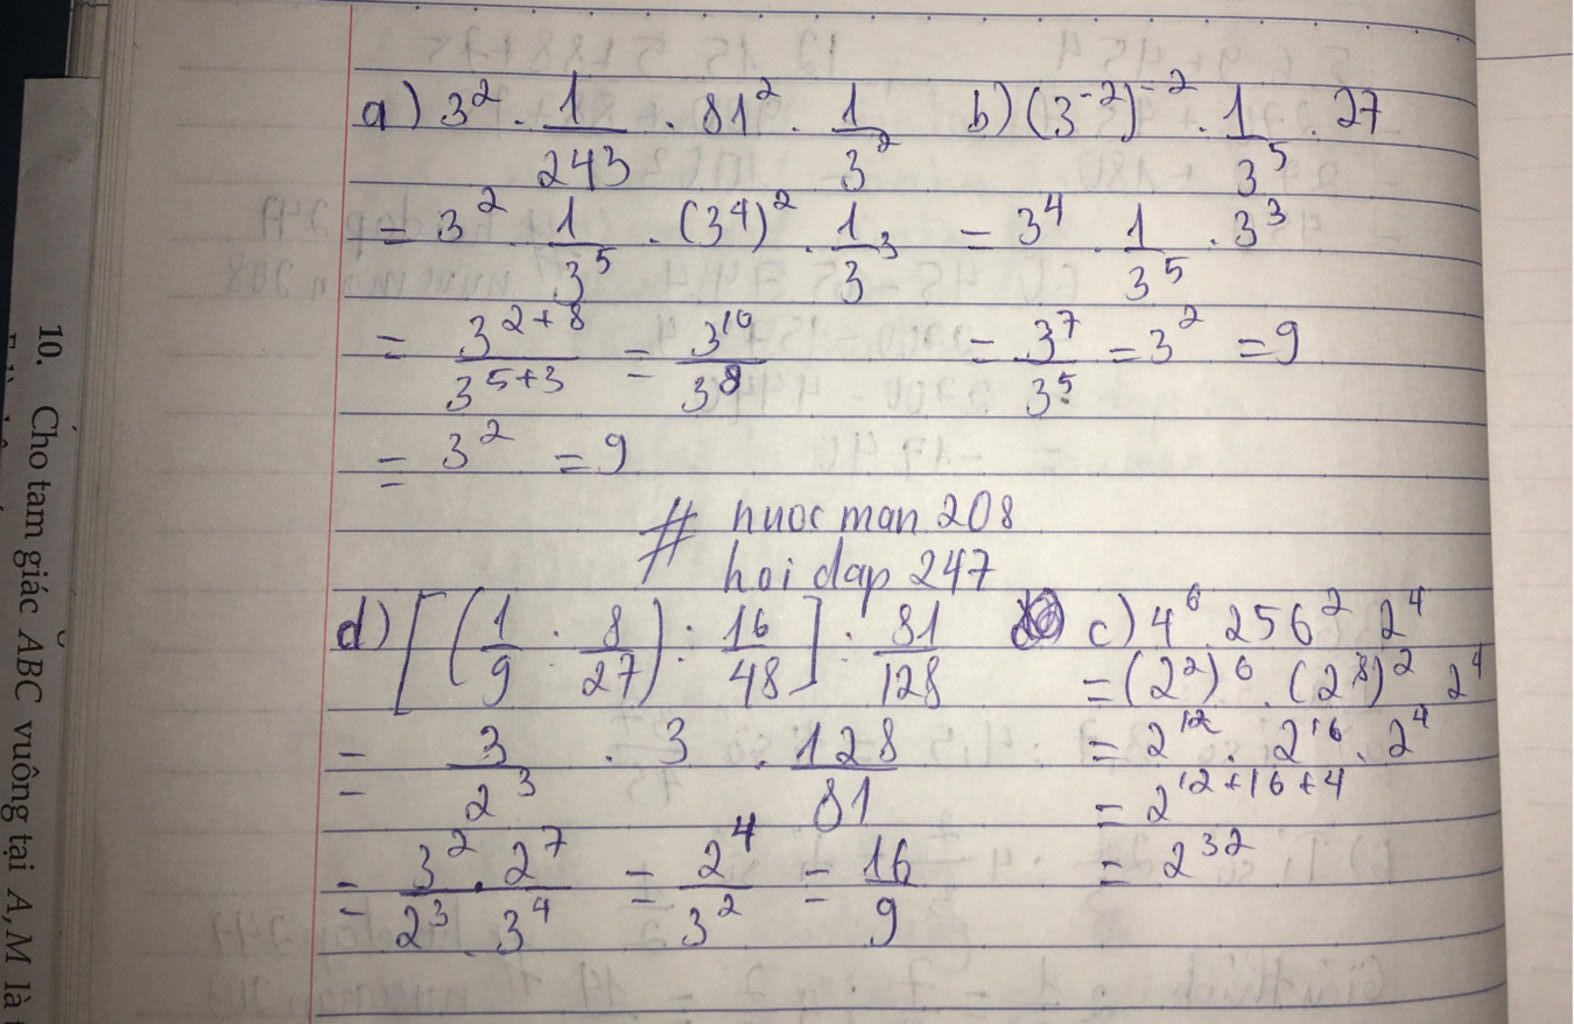 a) 3² · 1/243 · 81² · 1/3²
= 3² · 1/3⁵ · (3⁴)² · 1/3³
= 3²⁺⁸/3⁵⁺³ = 3¹⁰/3⁸
= 3² = 9
b) (3⁻²)⁻² · 1/3⁵ · 27
= 3⁴ · 1/3⁵ · 3³
= 3⁷/3⁵ = 3² = 9
# nuoc man 208
hoi dap 247
d) [(1/9 : 8/27) : 16/48] : 81/128
= 3/2³ · 3 · 128/81
= 3² · 2⁷/2³ · 3⁴ = 2⁴/3² = 16/9
c) 4⁶ . 256² 2⁴
= (2²)⁶ . (2⁸)² 2⁴
= 2¹² . 2¹⁶ . 2⁴
= 2¹²⁺¹⁶⁺⁴
= 2³²
10. Cho tam giác ABC vuông tại A, M là